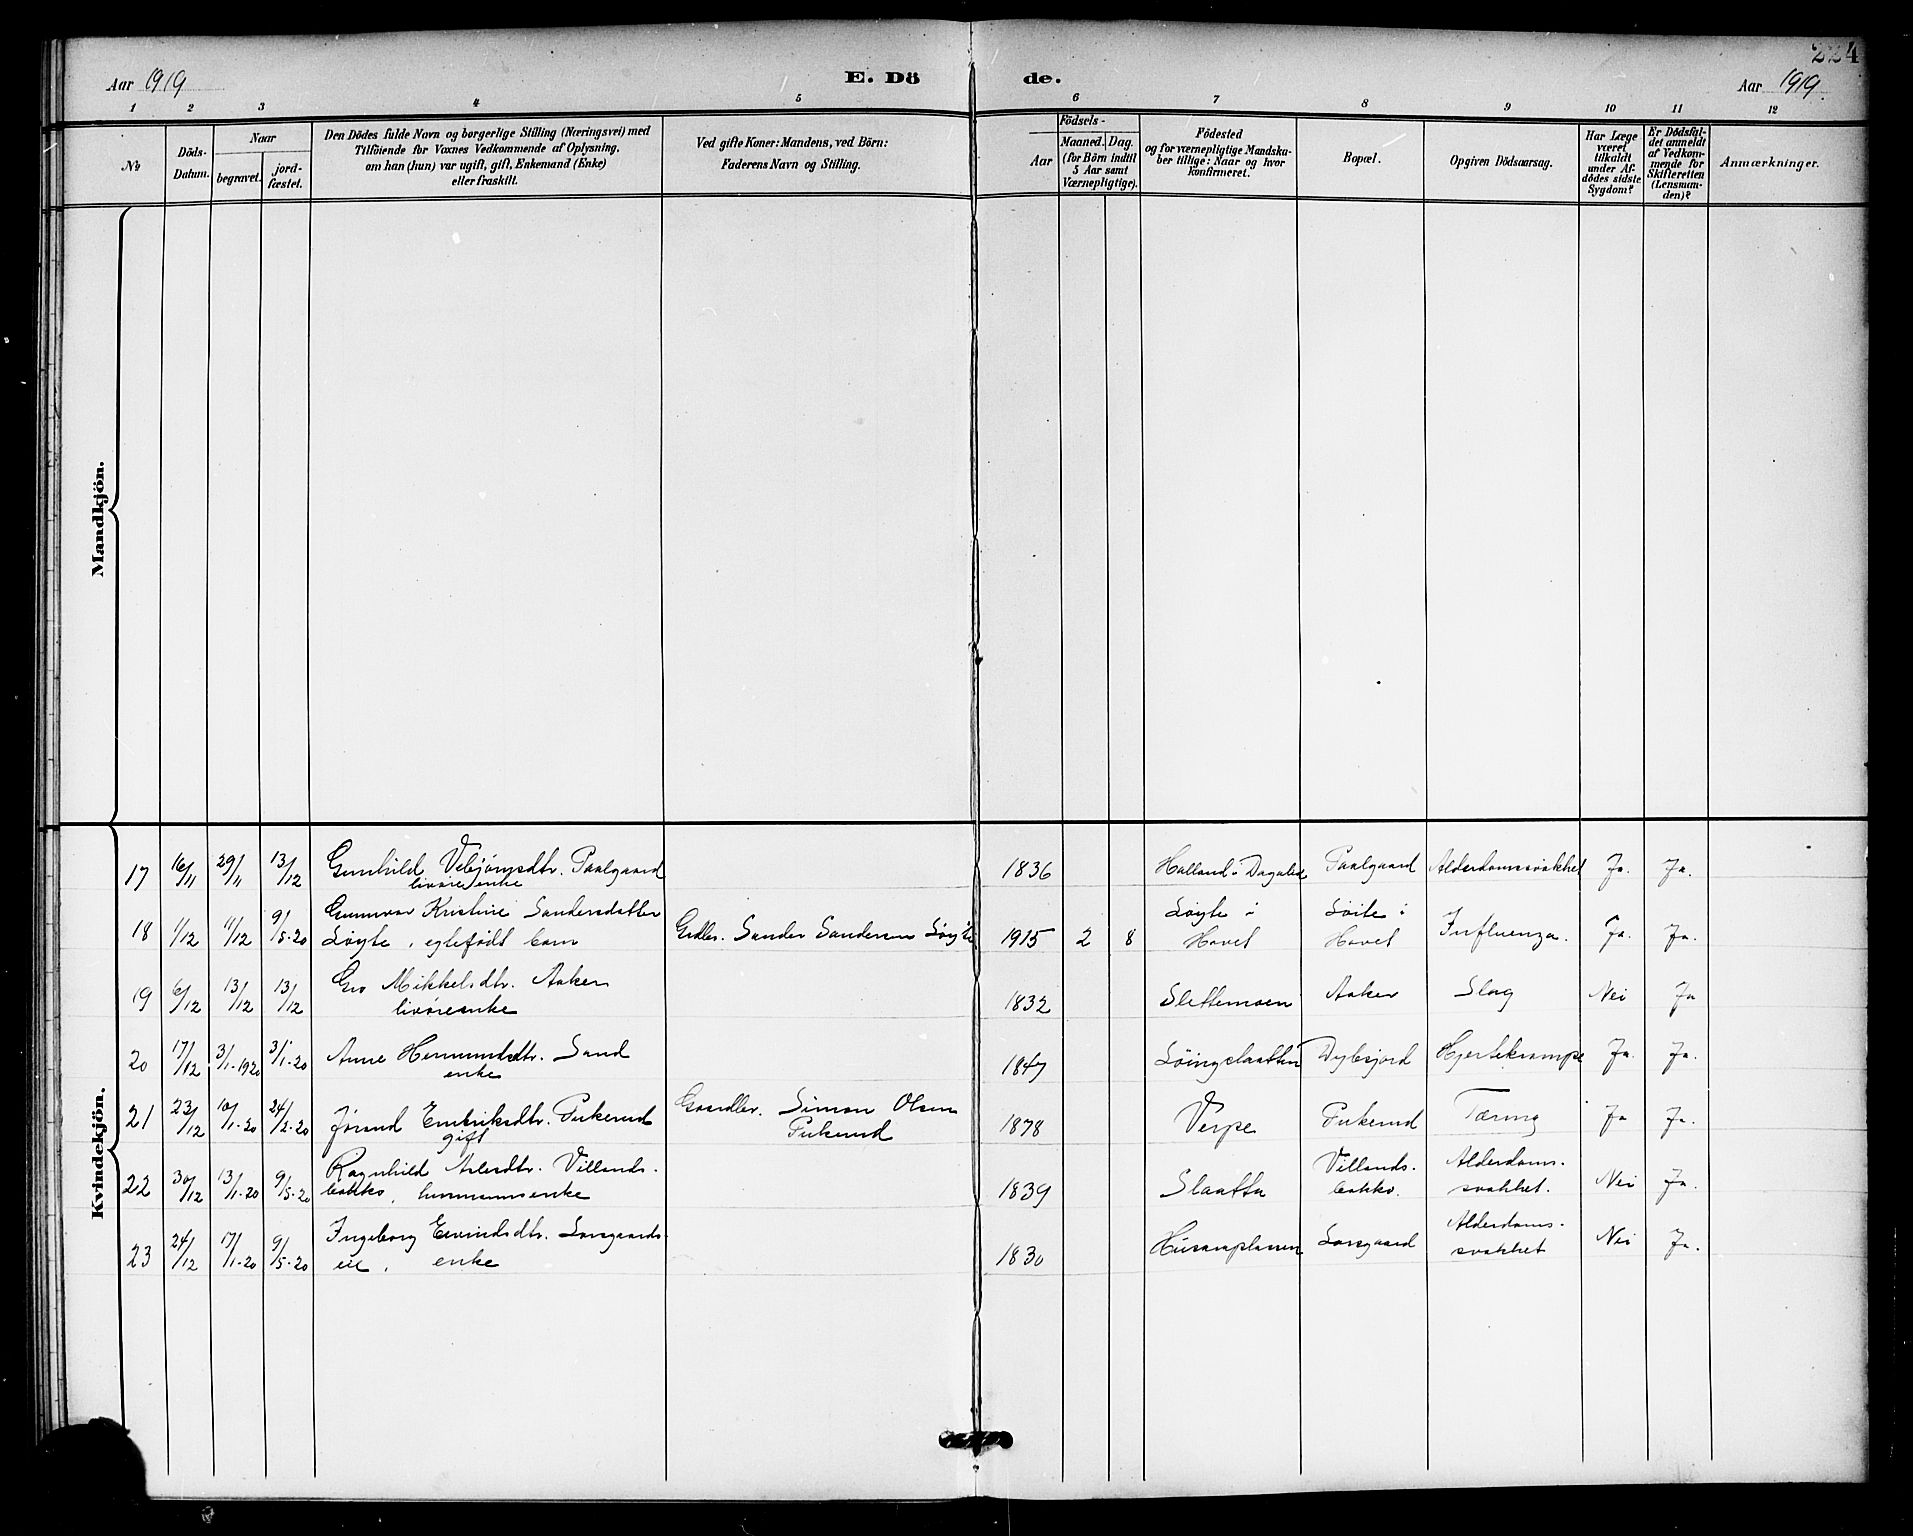 224
Aar 1919
E. Dö
de.
Aar 1919.
1 2 3 4 5 6 7 8 9 10 11 12
No
Döds-
Datum.
Naar
begravet.
jord-
fæstet.
Den Dödes fulde Navn og borgerlige Stilling (Næringsvei) med
Tilföiende for Voxnes Vedkommende af Oplysning,
om han (hun) var ugift, gift, Enkemand (Enke)
eller fraskilt.
Ved gifte Koner: Mandens, ved Börn:
Faderens Navn og Stilling.
Födsels-
Aar
Maaned. Dag.
(for Börn indtil
5 Aar samt
Værnepligtige).
Födested
og for værnepligtige Mandska-
ber tillige: Naar og hvor
konfirmeret.
Bopæl.
Opgiven Dödsaarsag.
Har Læge
været
tilkaldt
under Af-
dödes sidste
Sygdom?
Er Dödsfal-
det anmeldt
af Vedkom-
mende for
Skifteretten
(Lensman-
den)?
Anmærkninger.
Mandkjön.
Kvindekjön.
17 16/11 29/11 13/12 Gunhild Vebjørnsdtr. Paalgaard 1836 Halland i Dagalid Paalgaard Alderdomssvakhet Ja. Ja.
livøreenke
18 1/12 11/12 9/5-20 Gunnvor Kristine Sandersdatter
Løyte, egtefødt barn Grdbr. Sander Sandersen Løyte 1915 2 8 Løyte i
Hovet Løite i
Hovet Influenza. Ja. Ja.
19 6/12 13/12 13/12 Gro Mikkelsdtr. Aaker
livøreenke 1832 Slettemoen Aaker Slag Nei Ja
20 17/12 3/1-1920 3/1-20 Anne Hermundsdtr. Sand
enke 1847 Løingslaatten Dybsjord Hjertekrampe Ja. Ja.
21 23/12 10/1-20 24/2-20 Jørand Endriksdtr. Fukerud
gift Gaardbr. Simon Olsen
Fukerud 1878 Verpe Fukerud Tæring Ja Ja.
22 30/12 13/1-20 9/5-20 Ragnhild Aslesdtr. Villands-
bakko, husmannsenke 1839 Slaatta Villands-
bakko. Alderdoms-
svakhet. Nei Ja.
23 24/12 17/1-20 9/5-20 Ingeborg Eivindsdtr. Lorsgaards-
eie, enke 1830 Husomplassen Lorsgaard Alderdoms-
svakhet Nei Ja.